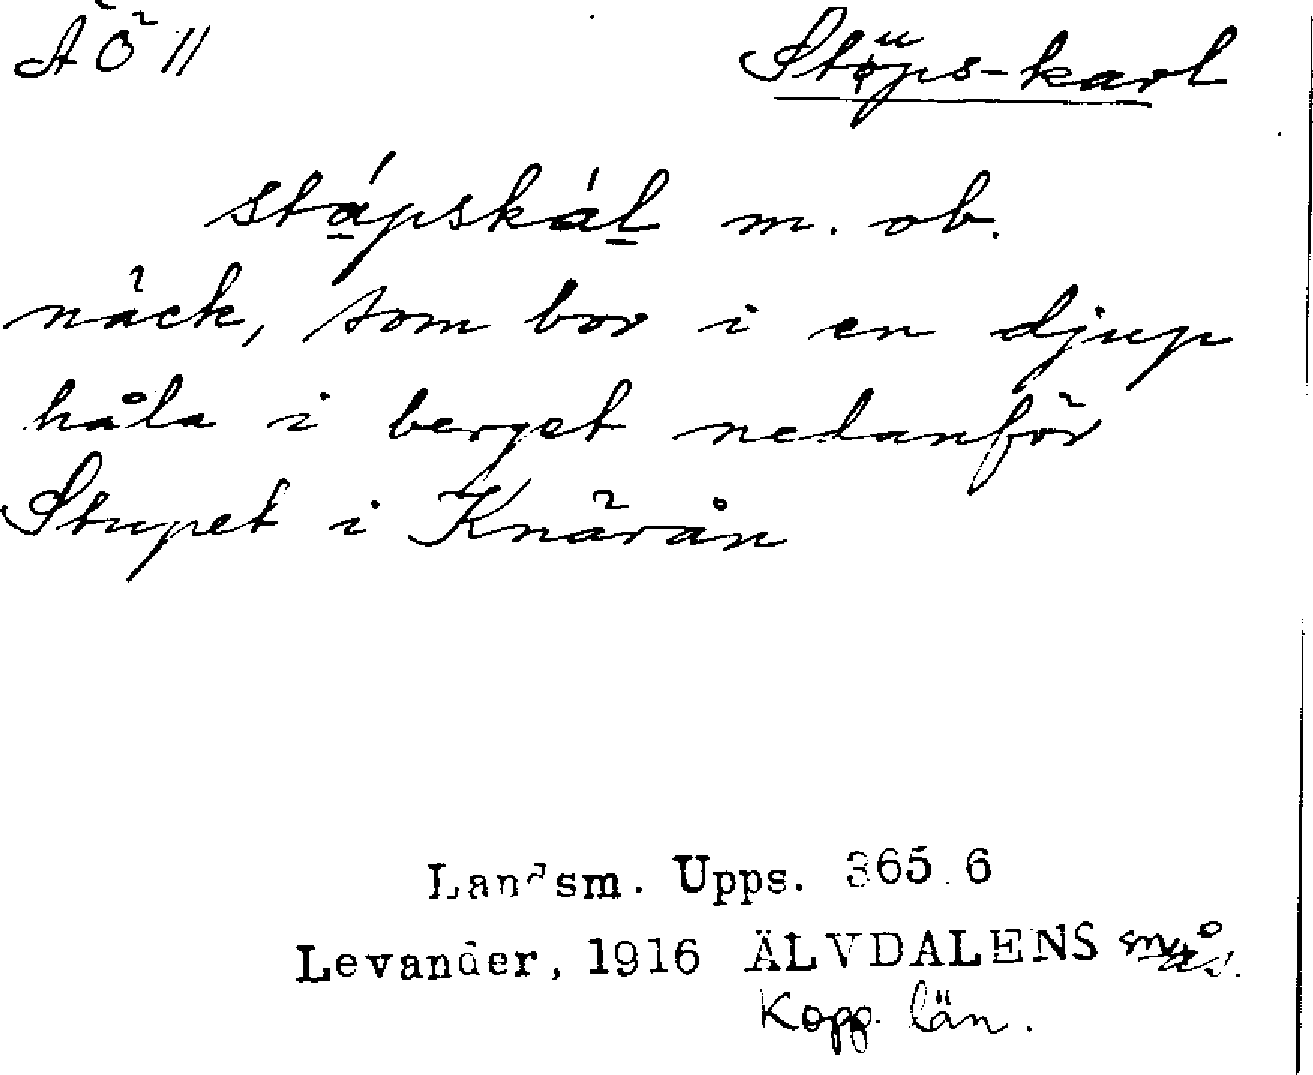 ÄÖ 11
Stöps-karl
stápskál m. ob.
näck, som bor i en djup
håla i berget nedanför
Stupet i Knärån
Landsm. Upps. 365 6
Levander, 1916 ÄLVDALENS
Kopp. län.